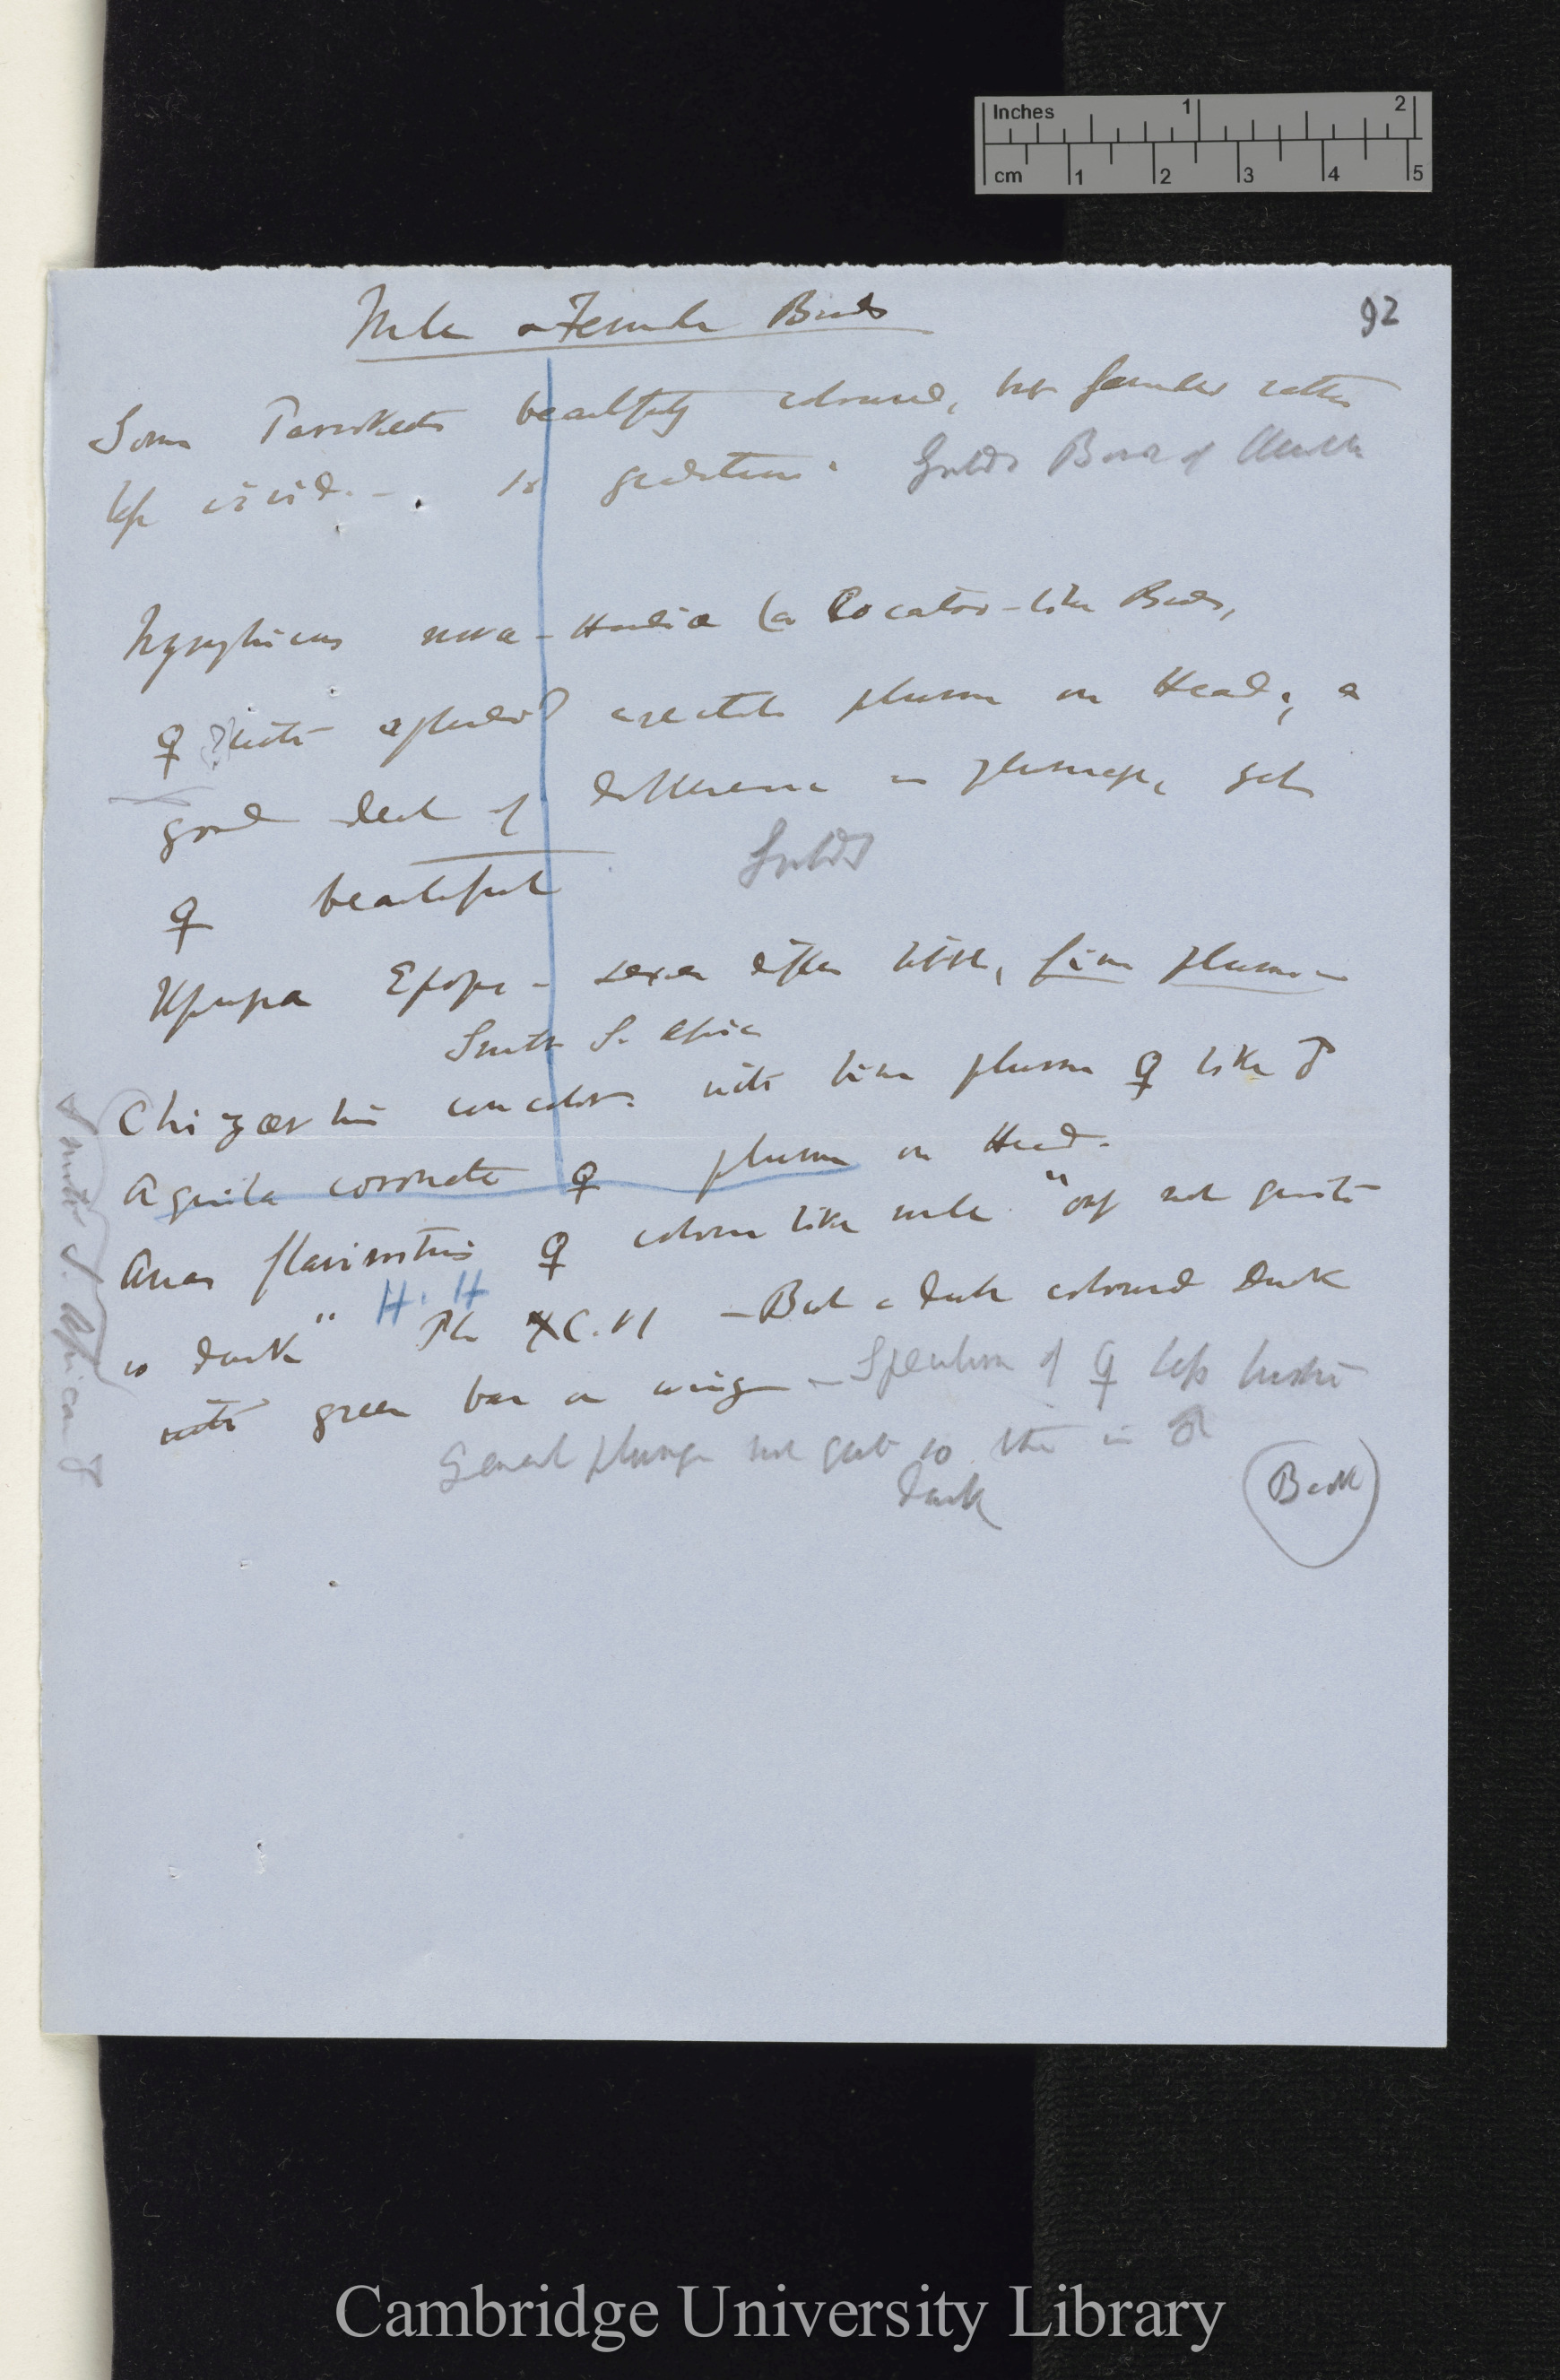 Inches 1 2
cm 1 2 3 4 5
92
Male & Female Birds
Some Parrokeets beautifully coloured, but females rather
less vivid. — is gradation. Gould's Birds of Austra
Nymphicus Novæ-Hollandiæ (a Cocatoo-like Birds,
♀ with splendid erectile plume on Head; a
good deal of difference in plumage, yet
♀ beautiful Gould
Upupa Epops — sexes differ little, fine plume —
Smith S. Africa
Chizærhis concolor. with fine plume ♀ like ♂
Aquila coronata ♀ plume on Head.
Anas flavirostris ♀ colour like male "only not quite
so dark" H. H Pl. XCVI — But a dark coloured Duck
with green bar on wing — Speculum of ♀ less lustre
General plumage not quite so dark
this in ♂
Smith S. Africa
Cambridge University Library